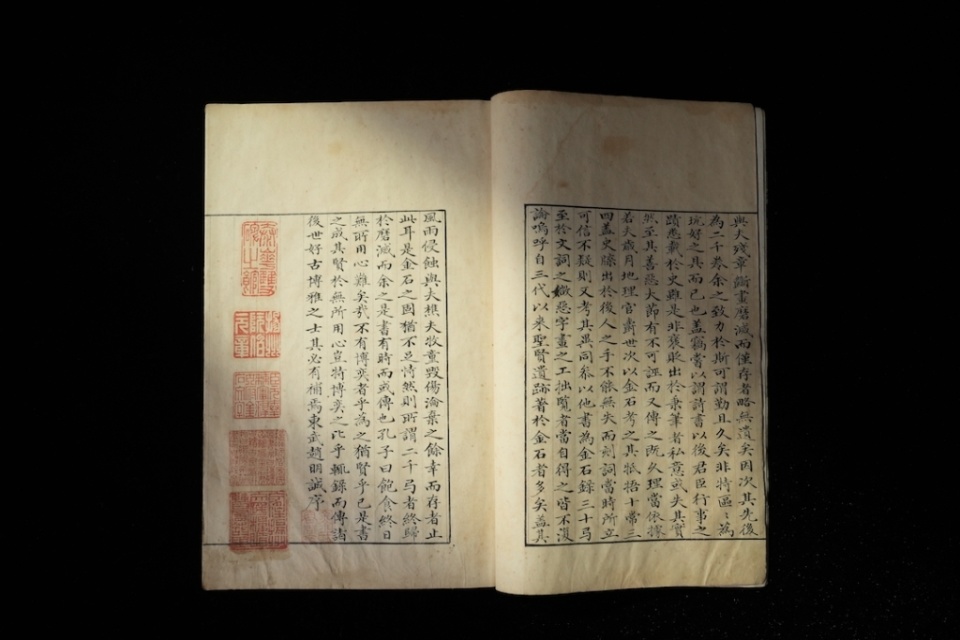 與夫殘章斷畫磨滅而僅存者略無遺矣因次其先後
為二千卷余之致力於斯可謂勤且久矣非特區〻為
玩好之具而已也蓋竊嘗以謂詩書以後君臣行事之
蹟悉載於史雖是非褒貶出於秉筆者私意或失其實
然至其善惡大節有不可誣而又傳之既久理當依據
若夫歲月地理官爵世次以金石考之其牴牾十常三
四蓋史牒出於後人之手不能無失而刻詞當時所立
可信不疑則又考其異同叅以他書為金石錄三十弓
至於文詞之媺惡字畫之工拙覽者當自得之皆不復
論嗚呼自三代以來聖賢遺跡著於金石者多矣蓋其
風雨侵蝕與夫樵夫牧童毀傷淪棄之餘幸而存者止
此耳是金石之固猶不足恃然則所謂二千弓者終歸
於磨滅而余之是書有時而或傳也孔子曰飽食終日
無所用心難矣哉不有博奕者乎為之猶賢乎已是書
之成其賢於無所用心豈特博奕之比乎輒錄而傳諸
後世好古博雅之士其必有補焉東武趙明誠序
泰華雙碑之館
揚州阮伯元章